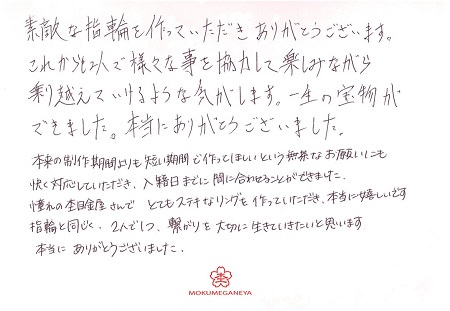 素敵な指輪を作っていただきありがとうございます。
これからも2人で様々な事を協力して楽しみながら
乗り越えていけるような気がします。一生の宝物が
できました。本当にありがとうございました。
本来の制作期間よりも短い期間で作ってほしいという無茶なお願いにも
快く対応していただき、入籍日までに間に合わせることができました。
憧れの杢目金屋さんで とてもステキなリングを作っていただき、本当に嬉しいです
指輪と同じく、2人で1つ、繋がりを大切に生きていきたいと思います
本当に ありがとうございました。
MOKUMEGANEYA